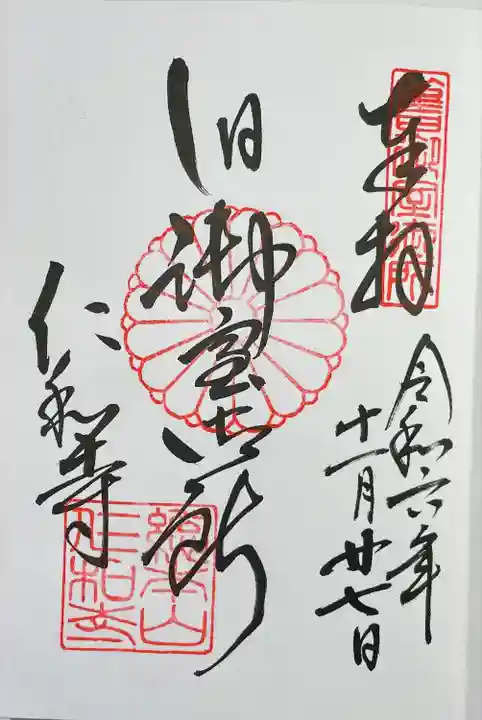 奉拝
令和六年
十一月廿七日
旧御室御所
仁和寺
舊御室御所
総本山
仁和寺